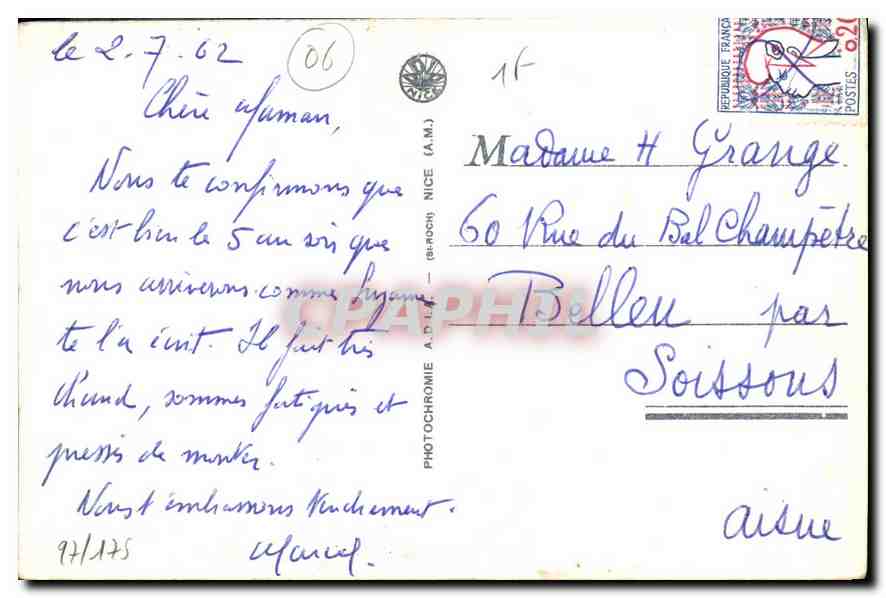 le 2-7-62
06
Chère Maman,
Nous te confirmons que
c'est bien le 5 au soir que
nous arriverons comme Suzanne
te l'a écrit. Il fait très
chaud, sommes fatigués et
pressés de monter.
Nous t'embrassons tendrement.
Marcel.
97/175
NICE
PHOTOCHROMIE A.D.I.A. — (St-ROCH) NICE (A.M.)
CPAPHIL
1F
REPUBLIQUE FRANÇA
0,20
POSTES
Madame H Grange
60 Rue du Bal Champêtre
Belleu par
Soissons
Aisne